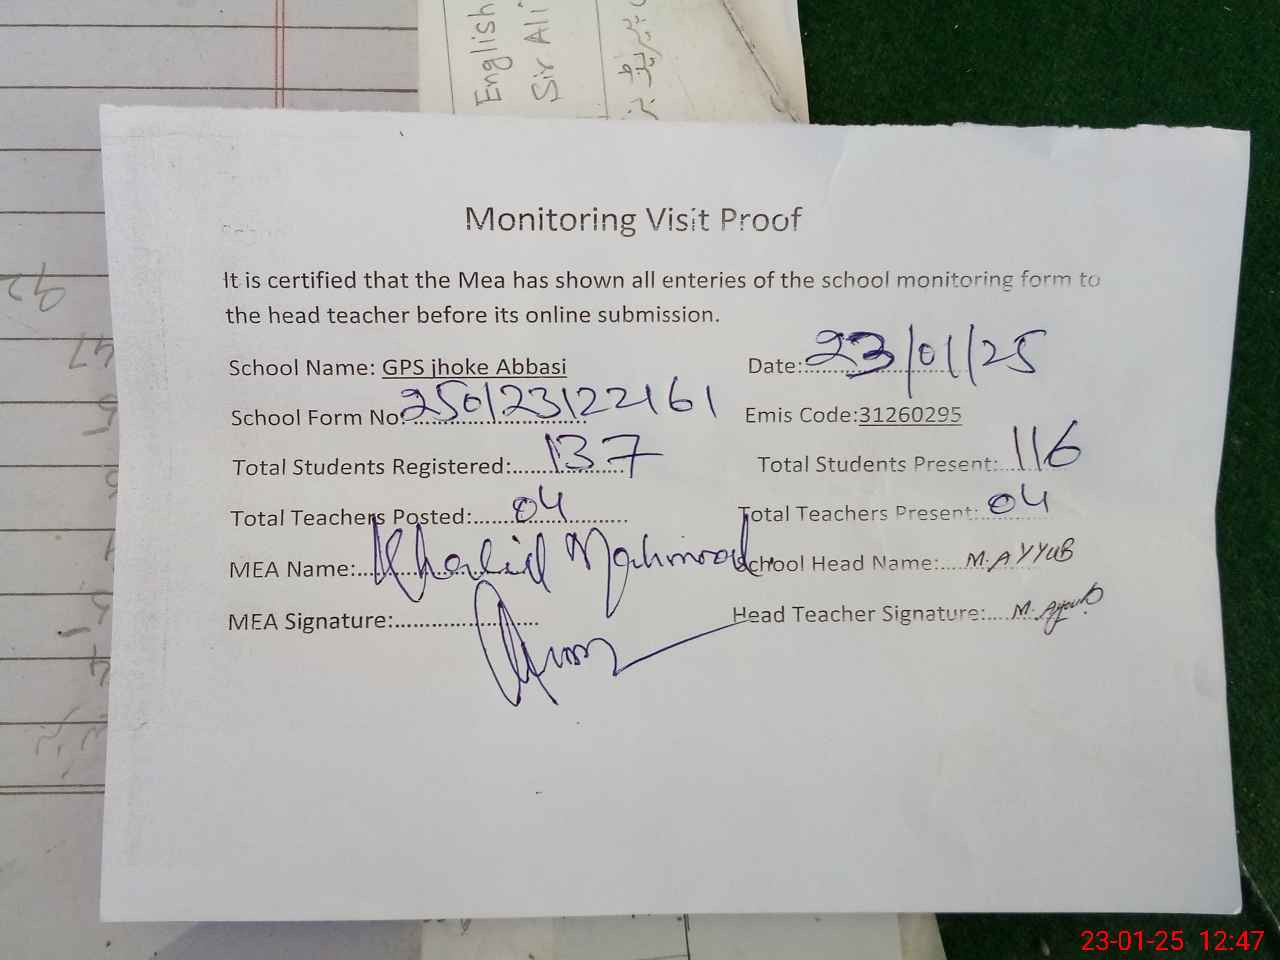 English
Sir Ali
Monitoring Visit Proof
It is certified that the Mea has shown all enteries of the school monitoring form to
the head teacher before its online submission.
School Name: GPS jhoke Abbasi Date:23/01/25
School Form No:250123122161 Emis Code:31260295
Total Students Registered:137 Total Students Present:116
Total Teachers Posted:04 Total Teachers Present:04
MEA Name:Khalid Mahmood School Head Name:M.AYYUB
MEA Signature: Head Teacher Signature:M.Ayub
23-01-25 12:47